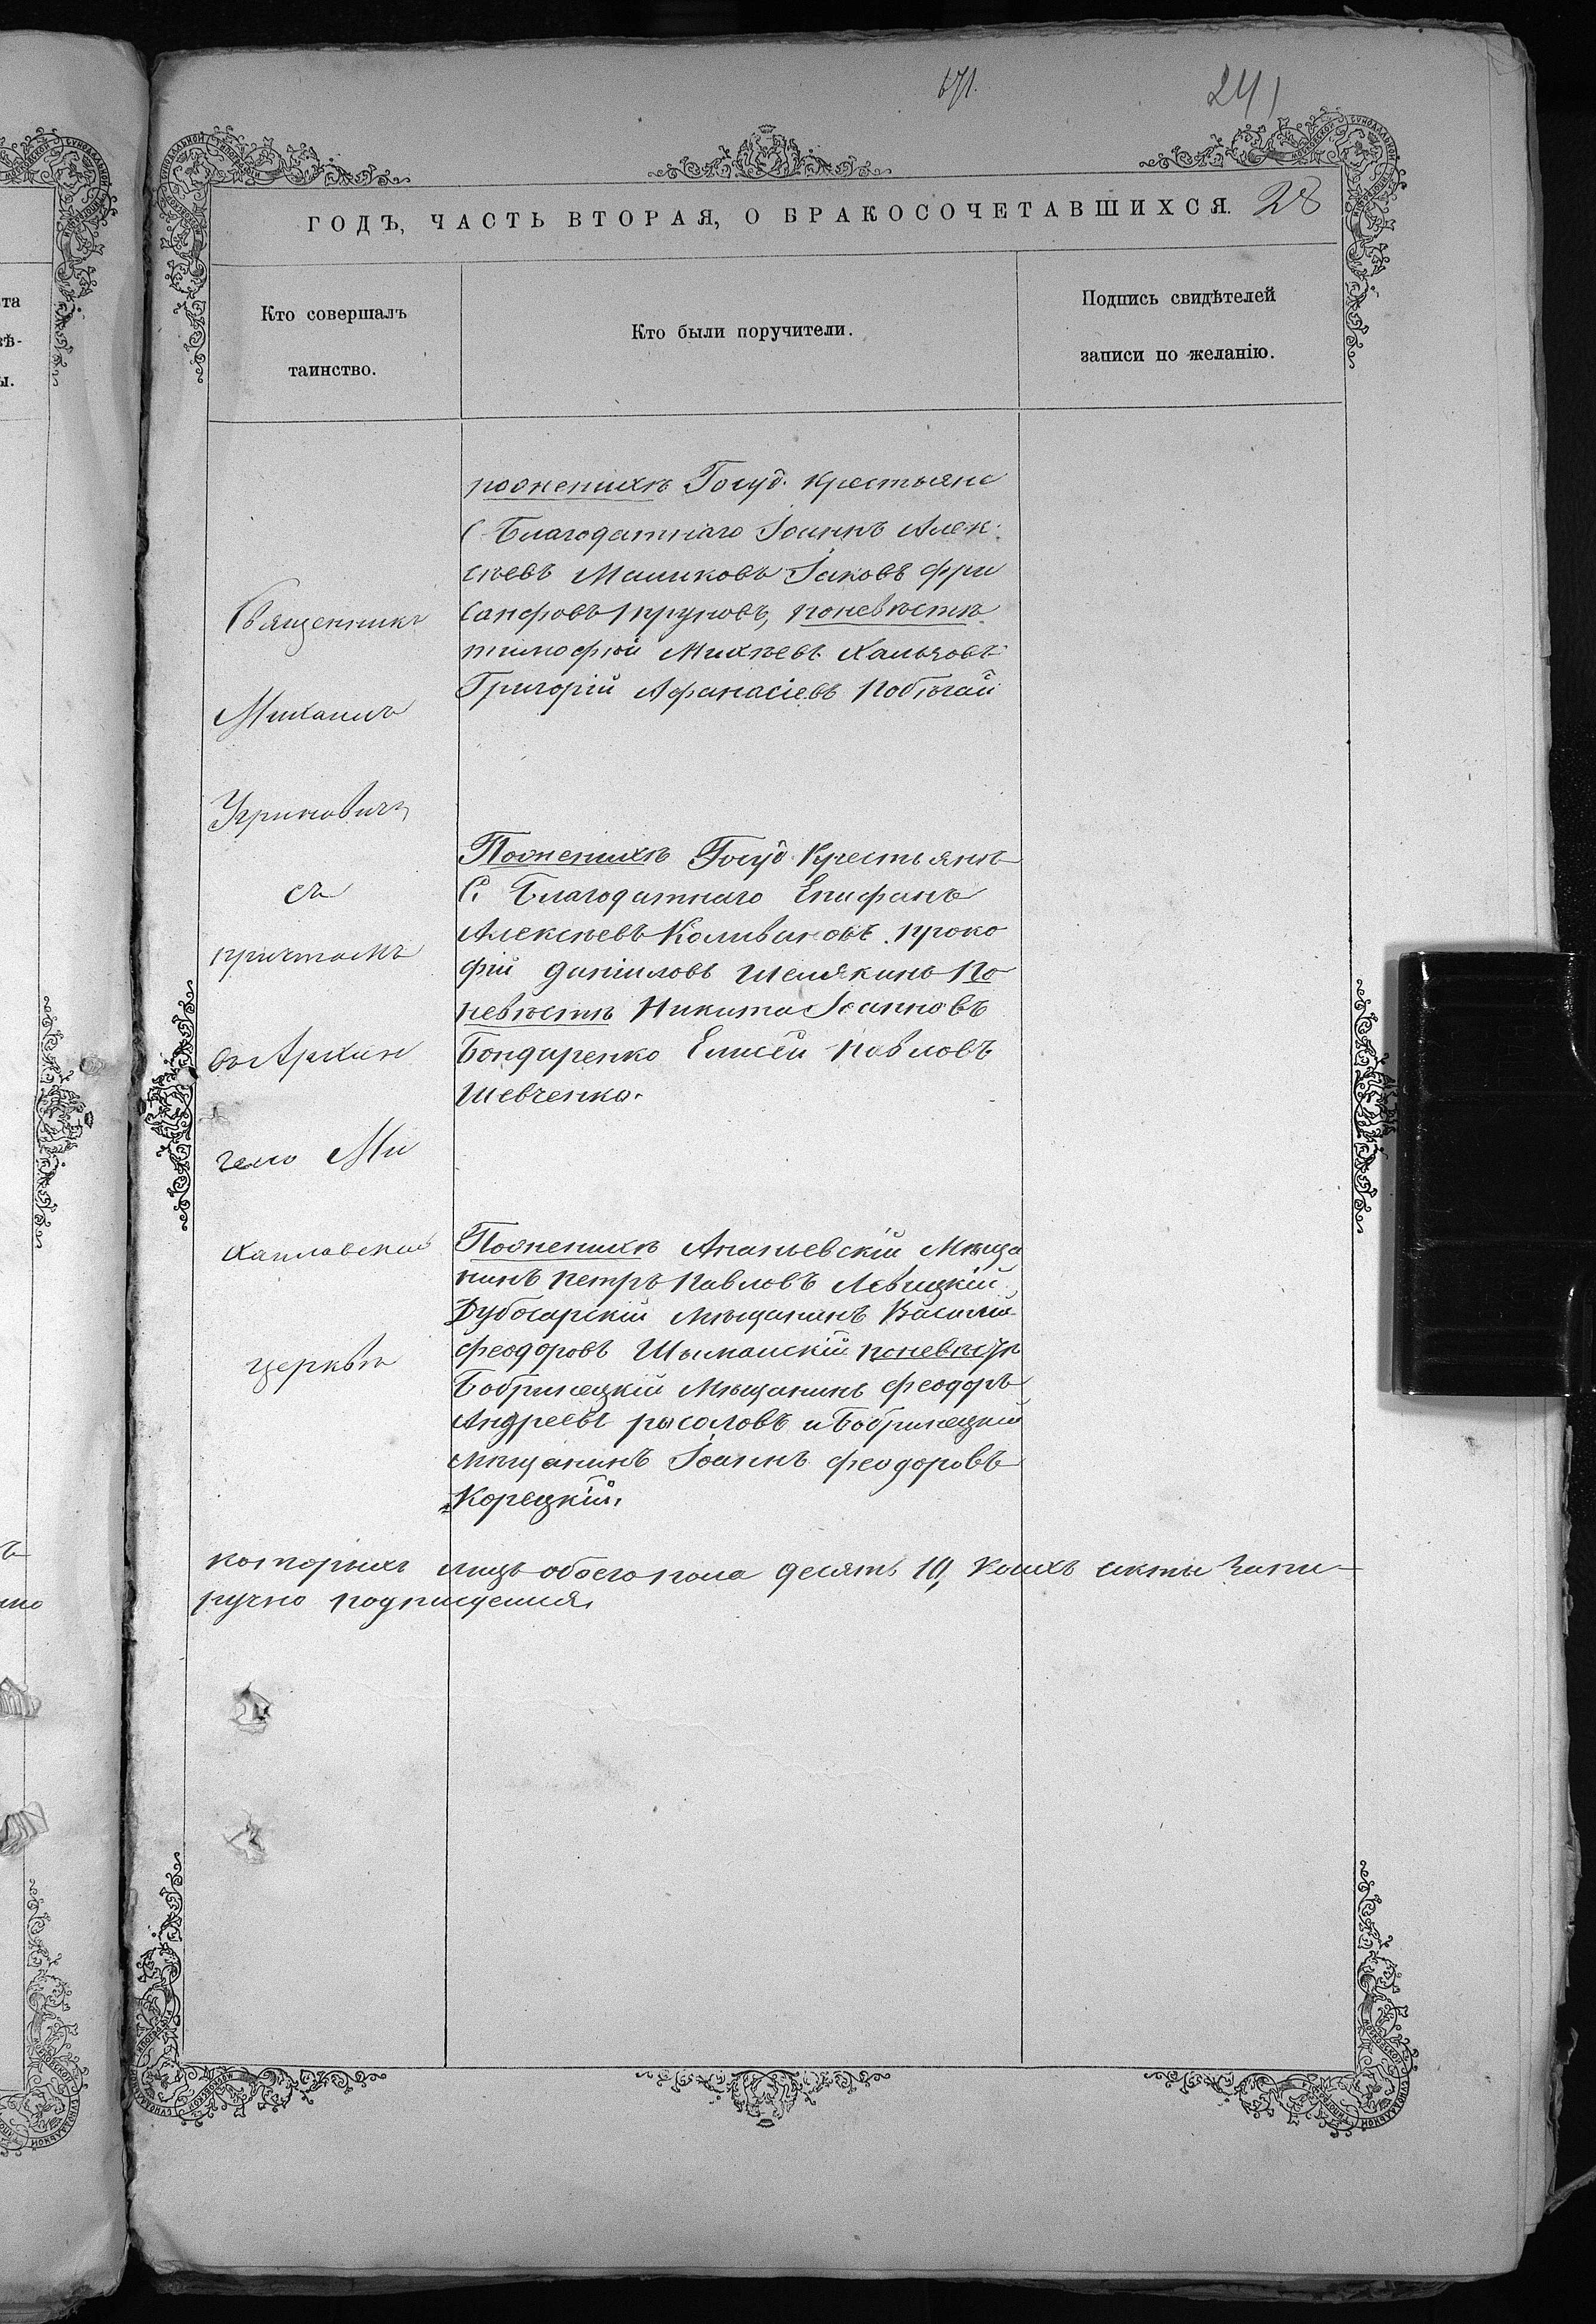 671.
241
28
ГОДЪ, ЧАСТЬ ВТОРАЯ, О БРАКОСОЧЕТАВШИХСЯ.
Кто совершалъ
таинство.
Кто были поручители.
Подпись свидѣтелей
записи по желанію.
Священникъ
Михаилъ
Угриновичъ
съ
причтомъ
въ Архан
гело Ми
хаиловской
церкви
по женихѣ Госуд. крестьяне
С Благодатнаго Іоаннъ Алек:
сѣевъ Маликовъ Іаковъ
поневѣстѣ
тимофѣй Михѣевъ
Григорій Афанасіевъ
По женихѣ Госуд Крестьянѣ
С. Благодатнаго Епифанъ
Алексѣевъ Коливановъ. Проко
фій даніиловъ Шелякинъ По
невѣстѣ Никита Іоанновъ
Бондаренко Елисей Павловъ
Шевченко.
По женихѣ Ананьевскій Мѣща
нинъ Петръ Павловъ Левицкій
Дубосарскій мѣщанинъ Василій
феодоровъ поневѣстѣ
Бобринецкій Мѣщанинъ феодоръ
Андреевъ росоловъ и Бобринецкій
мѣщанинъ Іоаннъ феодоровъ
Корецкій.
которихъ лицъ обоего пола десять 10, коихъ акты
ручно
та
вѣ-
ы.